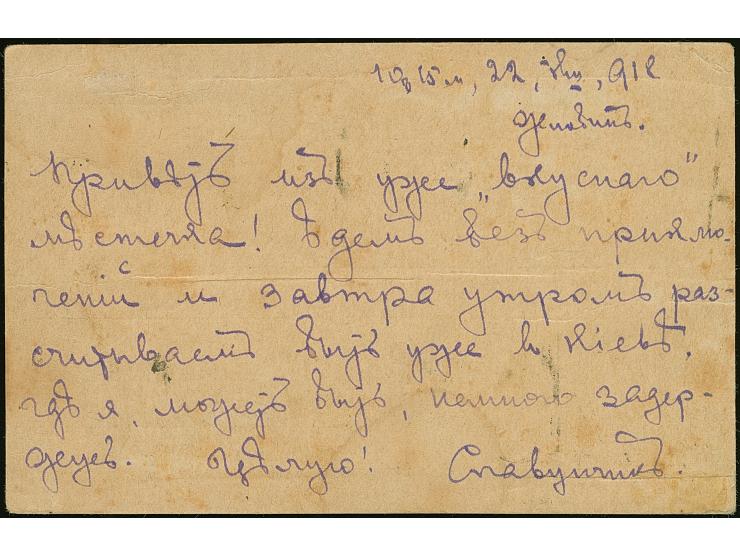 10ч 15м, 22, VIII, 918
Жлобинъ.
Привѣтъ изъ уже „вкуснаго"
мѣстечка! Ѣдемъ безъ приклю-
ченій и завтра утромъ раз-
считываемъ быть уже въ Кіевѣ,
гдѣ я, можетъ быть, немного задер-
жусь. Цѣлую! Славунчикъ.